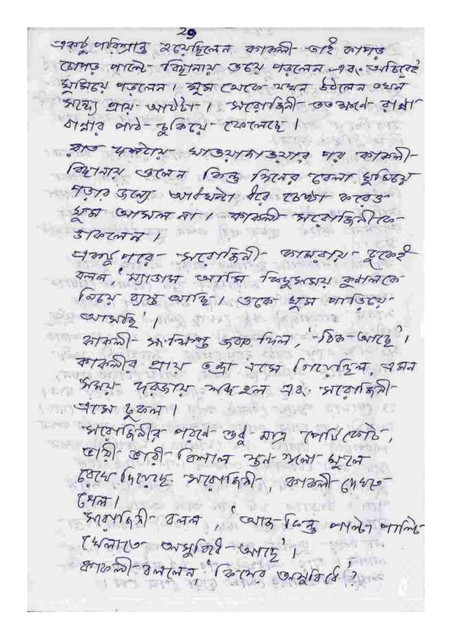 29
একটু পরিশ্রান্ত হয়েছিলেন কাকলী তাই কাপড়
চোপড় পাল্টে বিছানায় শুয়ে পড়লেন এবং অচিরেই
ঘুমিয়ে পড়লেন। ঘুম থেকে যখন উঠলেন তখন
সন্ধ্যে প্রায় আটটা। সরোজিনী ততক্ষণে রান্না
বান্নার পাঠ চুকিয়ে ফেলেছে।
রাত দশটায় খাওয়াদাওয়ার পর কাকলী
বিছানায় শুলেন কিন্তু দিনের বেলা ঘুমিয়ে
পড়ার জন্যে আধঘন্টা ধরে চেষ্টা করেও
ঘুম আসলো না। কাকলী সরোজিনীকে
ডাকলেন।
একটু পরে সরোজিনী কামরায় ঢুকেই
বলল, 'ম্যাডাম আমি কিছুসময় কুণালকে
নিয়ে ব্যস্ত আছি। ওকে ঘুম পাড়িয়ে
আসছি'
কাকলী সংক্ষিপ্ত জবাব দিল, 'ঠিক আছে'।
কাকলীর প্রায় তন্দ্রা এসে গিয়েছিল, এমন
সময় দরজায় শব্দ হল এবং সরোজিনী
এসে ঢুকল।
সরোজিনীর পরণে শুধু মাত্র পেটিকোট,
ভারী ভারী বিশাল স্তন গুলো খুলে
রেখে দিয়েছে সরোজিনী, কাকলী দেখতে
পেল।
সরোজিনী বলল, 'আজ কিন্তু পাল্টা পাল্টি
খেলাতে অসুবিধে আছে'।
কাকলী বললেন 'কিসের অসুবিধে'?